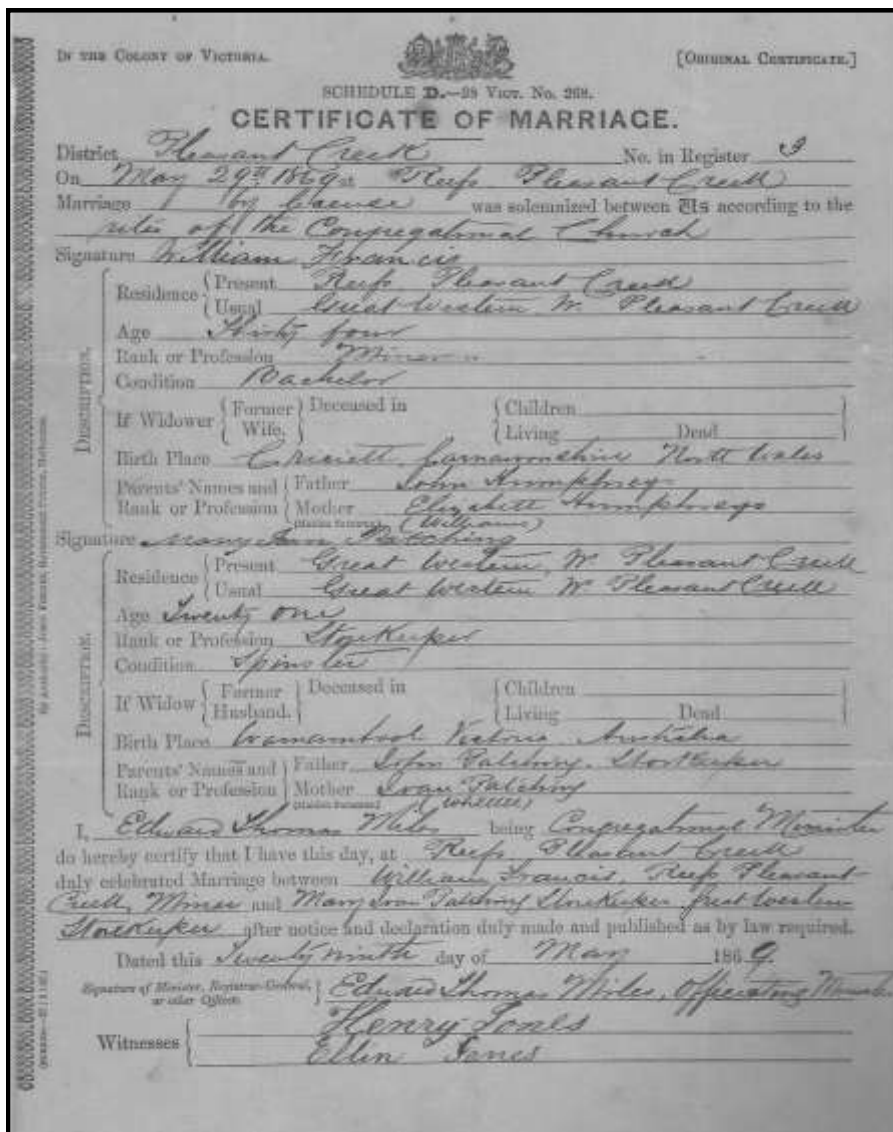 IN THE COLONY OF VICTORIA. [ORIGINAL CERTIFICATE.]
SCHEDULE D.—28 VICT. No. 268.
CERTIFICATE OF MARRIAGE.
District Pleasant Creek No. in Register 3
On May 29th 1869 at Reefs Pleasant Creek
Marriage by License was solemnized between Us according to the
rites of the Congregational Church
Signature William Francis
Residence Present Reefs Pleasant Creek
Usual Great Western W. Pleasant Creek
Age Thirty four
Rank or Profession Miner
Condition Bachelor
If Widower Former Wife, Deceased in Children
Living Dead
Birth Place Carnarvonshire North Wales
Parents' Names and Father John Humphreys
Rank or Profession Mother Elizabeth Humphreys
(Maiden Surname) (Williams)
Signature Mary Ann Patching
Residence Present Great Western W. Pleasant Creek
Usual Great Western W. Pleasant Creek
Age Twenty one
Rank or Profession Storekeeper
Condition Spinster
If Widow Former Husband. Deceased in Children
Living Dead
Birth Place Victoria Australia
Parents' Names and Father John Patching. Storekeeper
Rank or Profession Mother Patching
(Maiden Surname)
I, Edward Thomas Miles being Congregational Minister
do hereby certify that I have this day, at Reefs Pleasant Creek
duly celebrated Marriage between William Francis, Reefs Pleasant
Creek, Miner and Mary Patching Storekeeper Great Western
Storekeeper after notice and declaration duly made and published as by law required.
Dated this Twenty ninth day of May 1869.
Signature of Minister, Registrar-General, or other Officer. Edward Thomas Miles, Officiating Minister
Witnesses Henry Jones
Ellin Jones
DESCRIPTION.
DESCRIPTION.